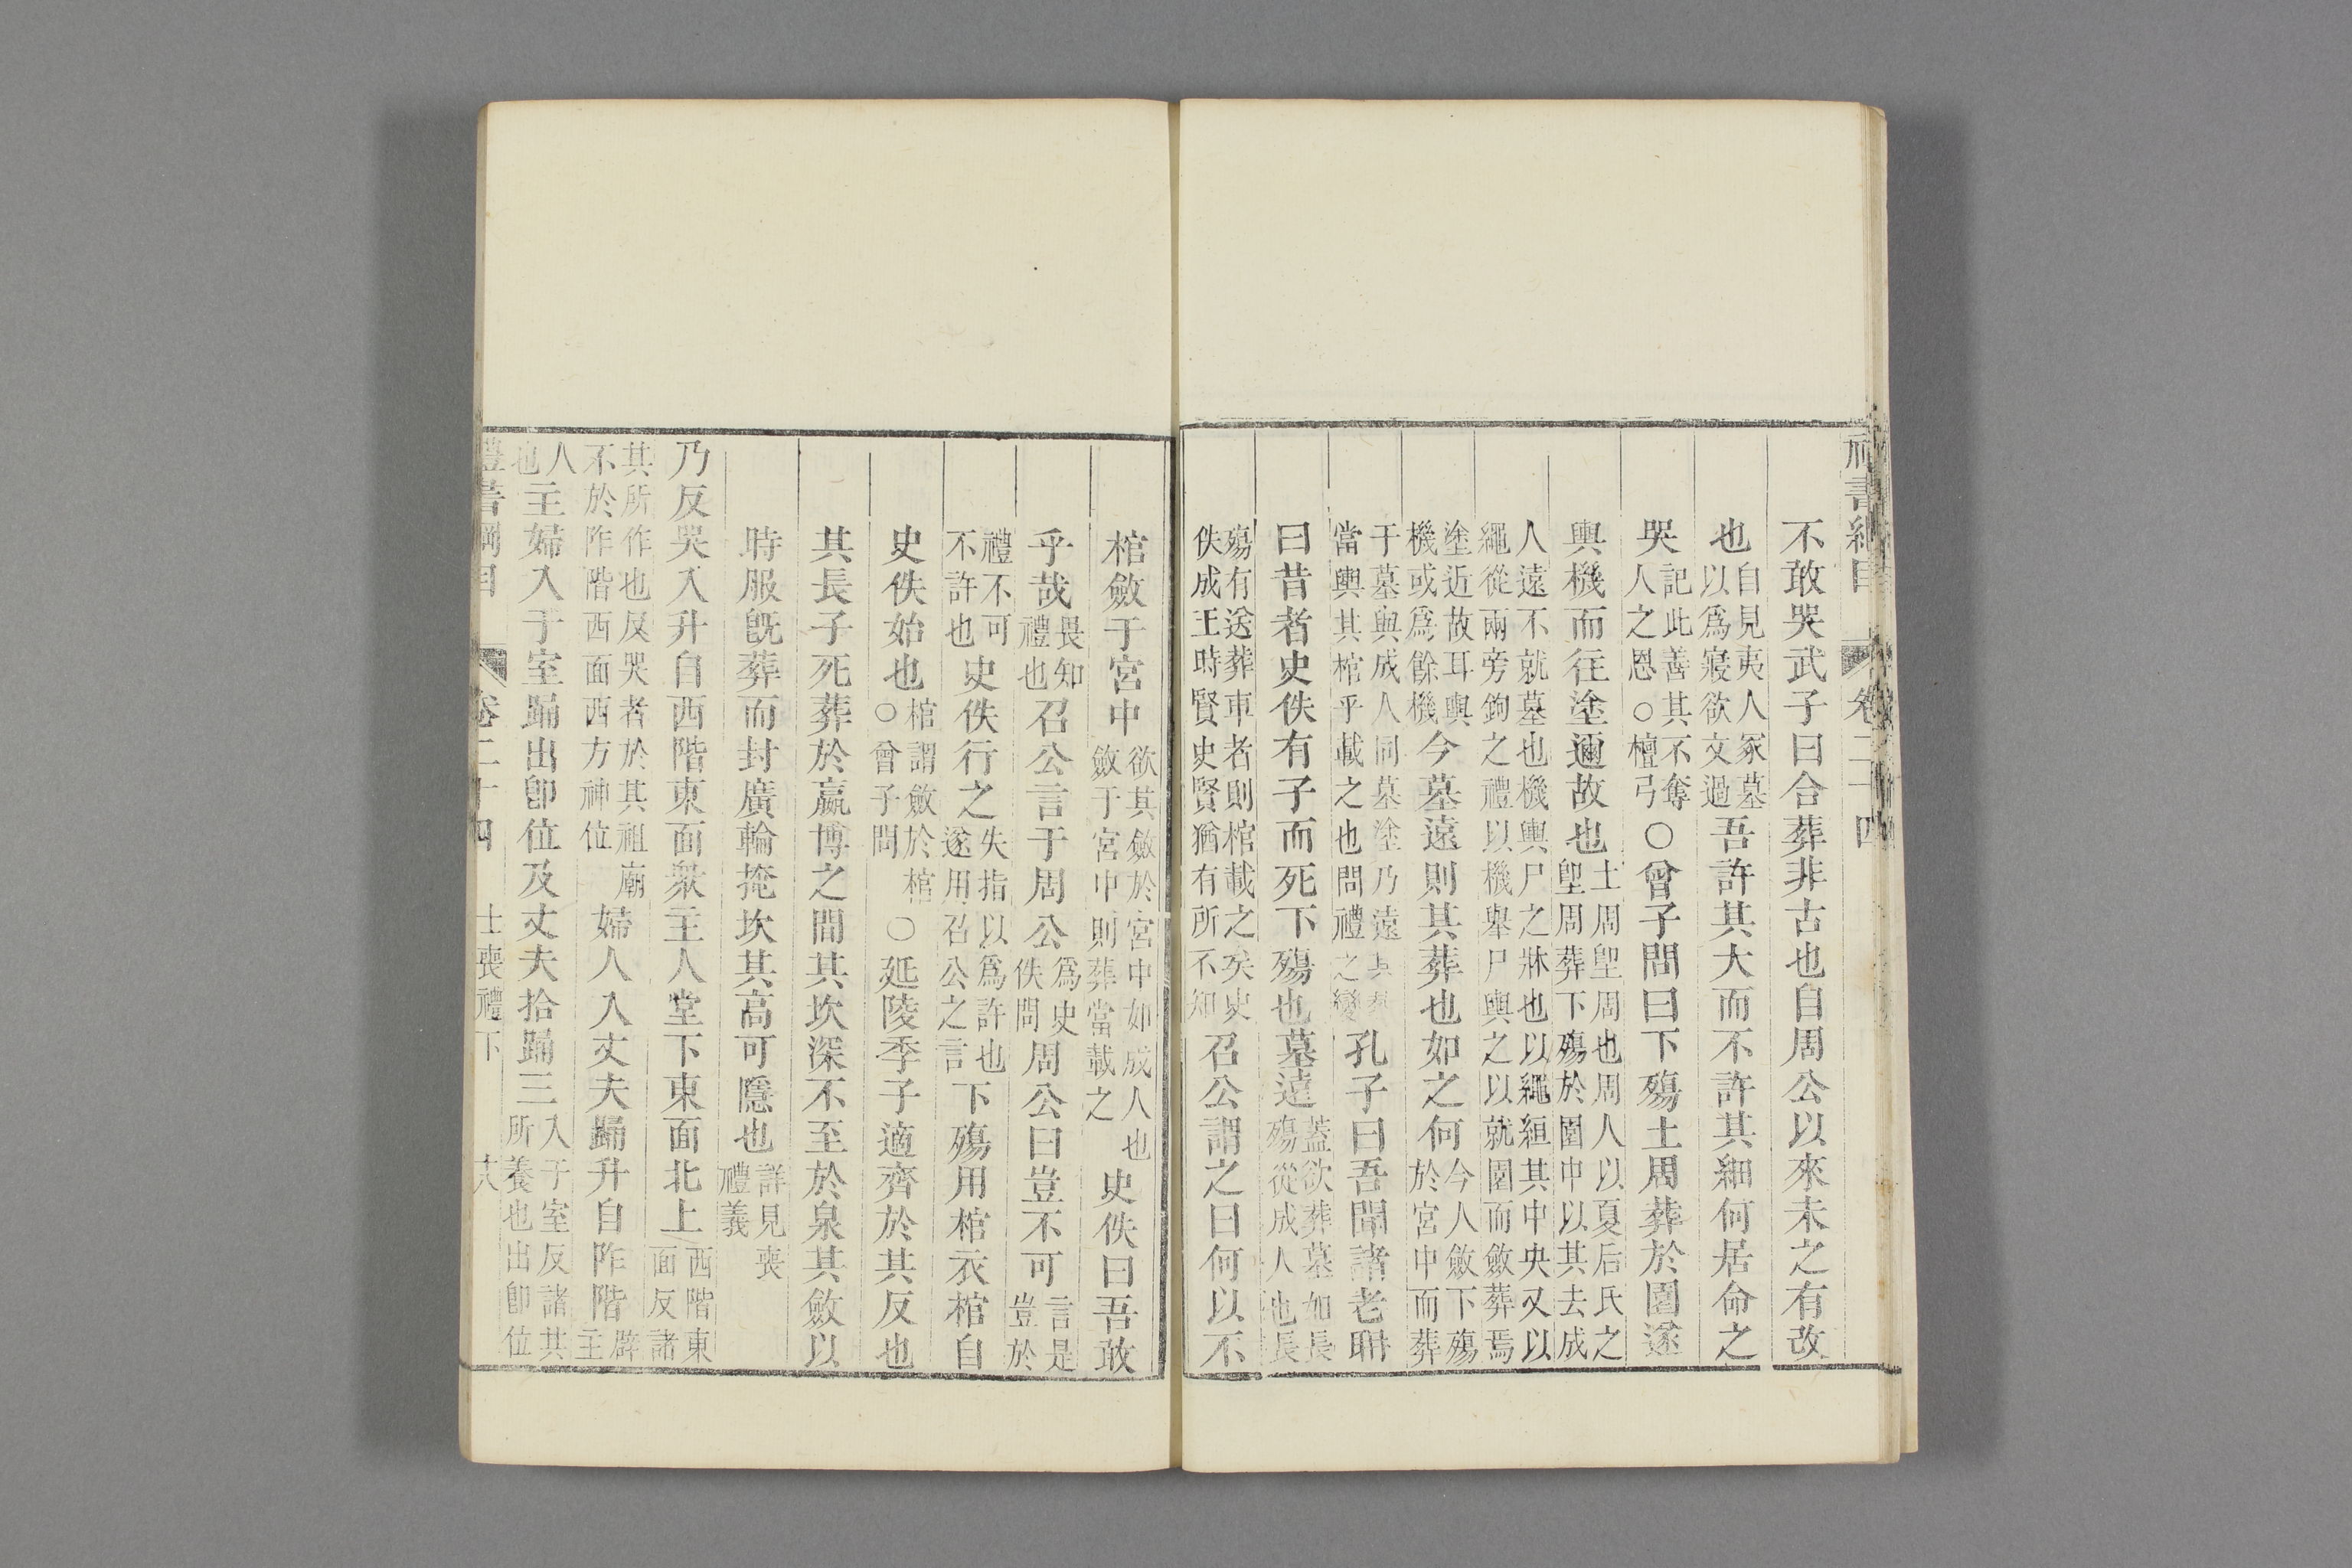 禮書綱目　卷二十四
不敢哭武子曰合葬非古也自周公以來未之有改
也自見夷人冢墓以爲寢欲文過吾許其大而不許其細何居命之
哭記此善其不奪人之恩○檀弓○曾子問曰下殤土周葬於園遂
輿機而往塗邇故也土周堲周也周人以夏后氏之堲周葬下殤於園中以其去成
人遠不就墓也機輿尸之牀也以繩絙其中央又以繩從兩旁鉤之禮以機舉尸輿之以就園而斂葬焉
塗近故耳輿機或爲餘機今墓遠則其葬也如之何今人斂下殤於宮中而葬
于墓與成人同墓塗乃遠其葬當輿其棺乎載之也問禮之變孔子曰吾聞諸老聃
曰昔者史佚有子而死下殤也墓遠蓋欲葬墓如長殤從成人也長
殤有送葬車者則棺載之矣史佚成王時賢史賢猶有所不知召公謂之曰何以不
棺斂于宮中欲其斂於宮中如成人也斂于宮中則葬當載之史佚曰吾敢
乎哉畏知禮也召公言于周公爲史佚問周公曰豈不可言是豈於
禮不可不許也史佚行之失指以爲許也遂用召公之言下殤用棺衣棺自
史佚始也棺謂斂於棺○曾子問○延陵季子適齊於其反也
其長子死葬於嬴博之間其坎深不至於泉其斂以
時服旣葬而封廣輪掩坎其高可隱也詳見喪禮義
乃反哭入升自西階東面衆主人堂下東面北上西階東面反諸
其所作也反哭者於其祖廟不於阼階西面西方神位婦人入丈夫踊升自阼階辟主
人也主婦入于室踊出卽位及丈夫拾踊三入于室反諸其所養也出卽位
禮書綱目　卷二十四　士喪禮下　十八